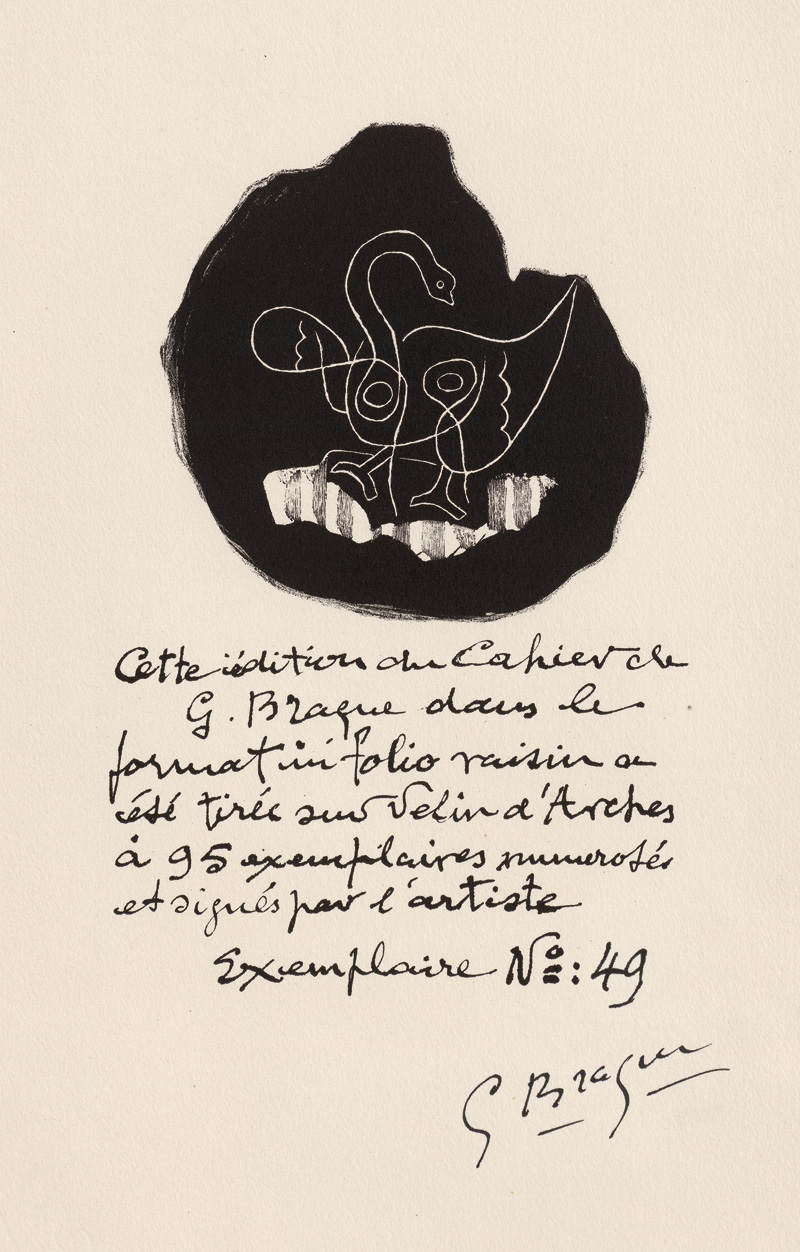 Cette édition du Cahier de
G. Braque dans le
format in folio raisin a
été tirée sur Velin d'Arches
à 95 exemplaires numerotés
et signés par l'artiste
Exemplaire Nº: 49
G Braque